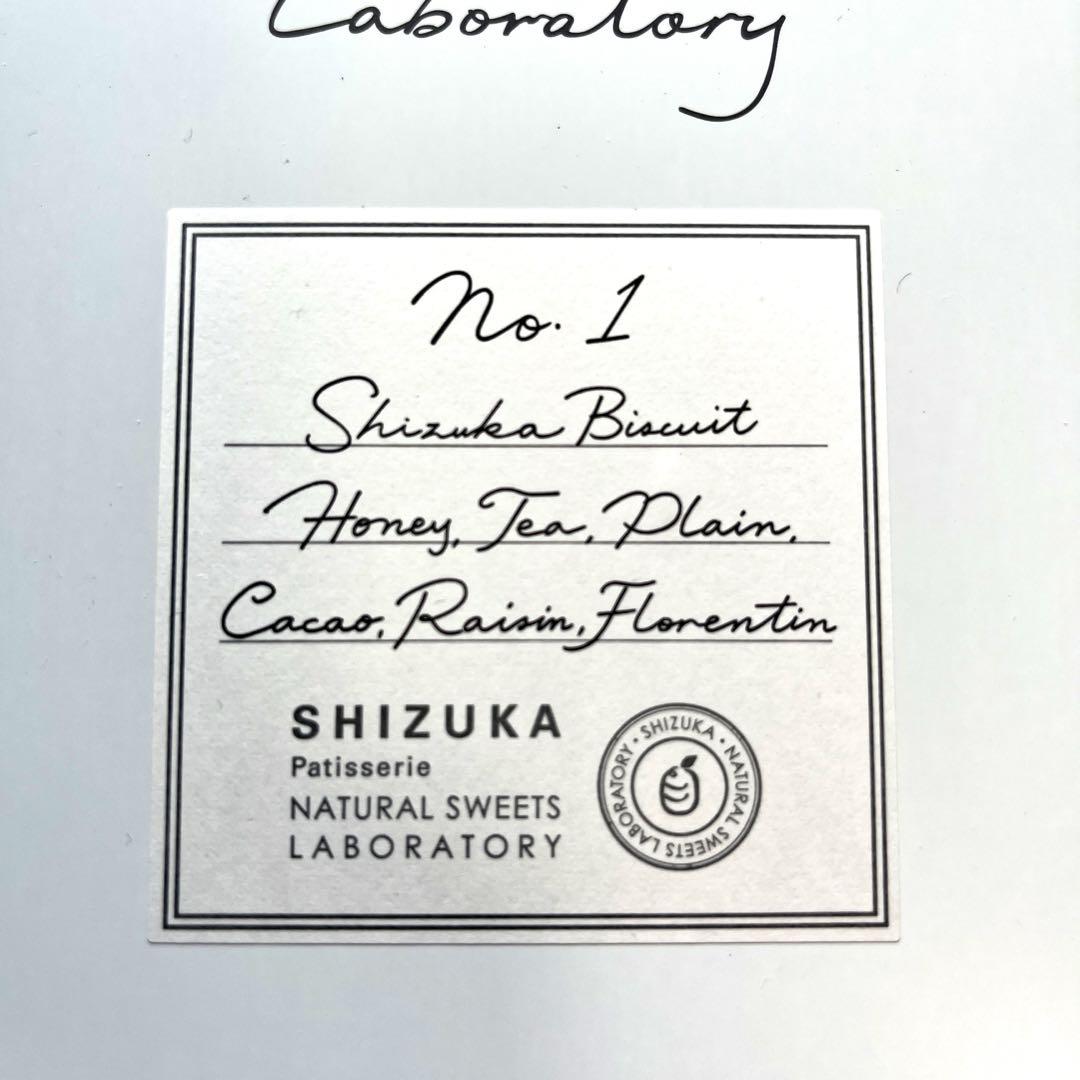 Laboratory
No. 1
Shizuka Biscuit
Honey, Tea, Plain,
Cacao, Raisin, Florentin
SHIZUKA
Patisserie
NATURAL SWEETS
LABORATORY
SHIZUKA • NATURAL SWEETS LABORATORY •